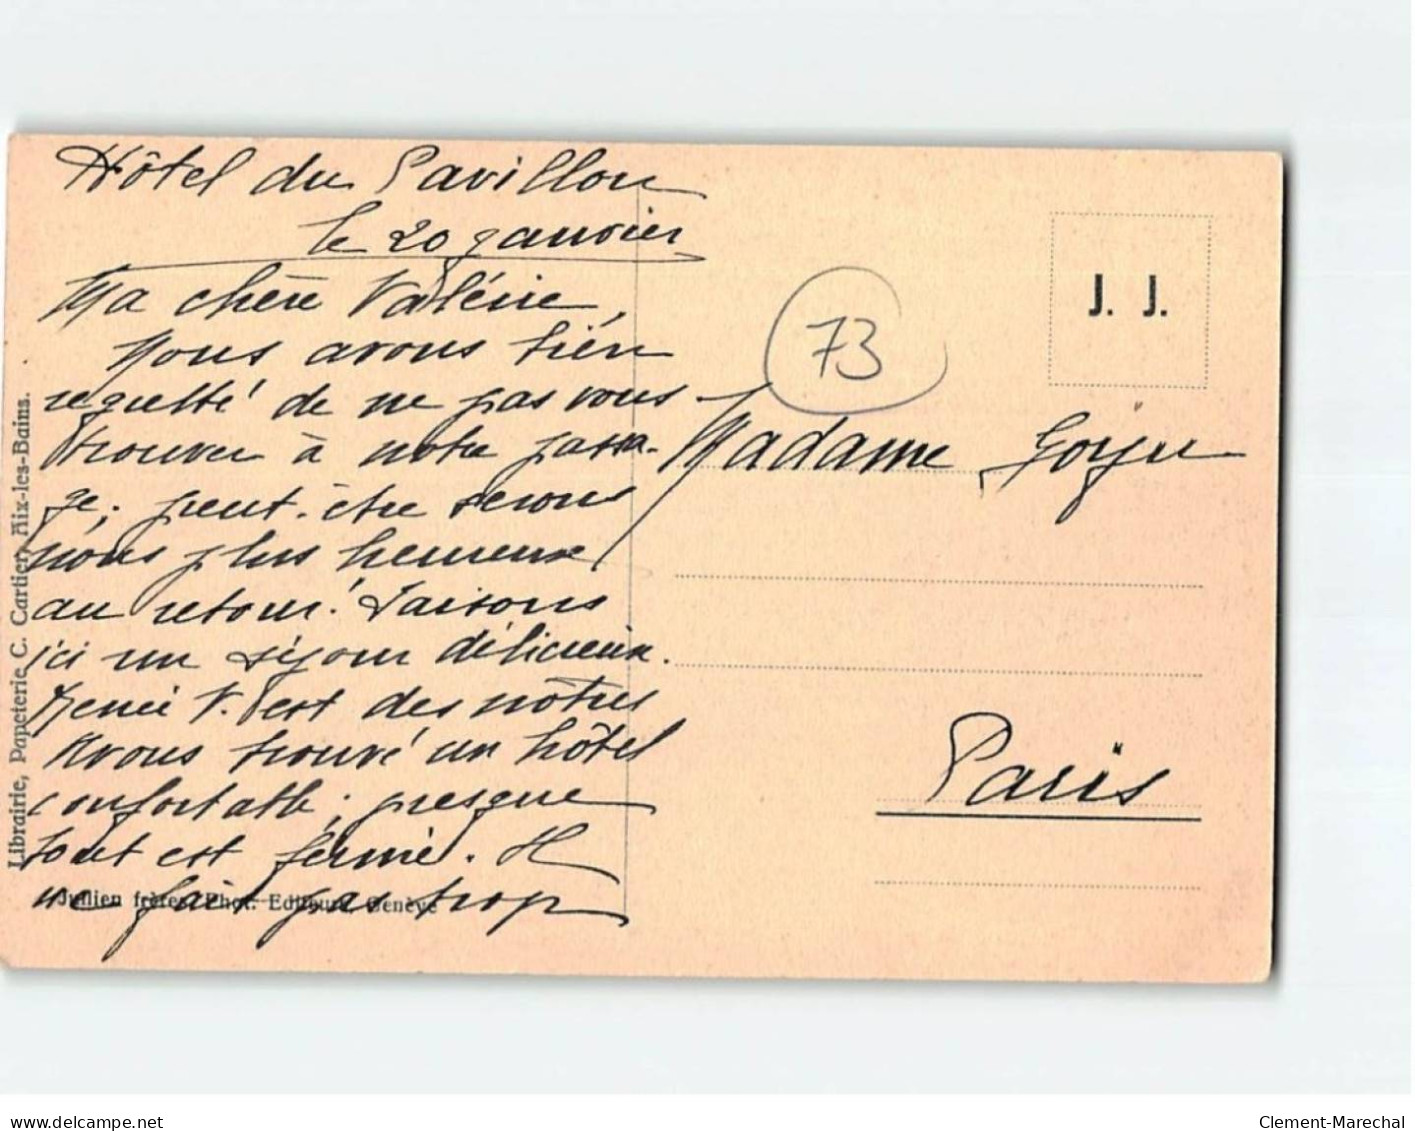 Hôtel du Pavillon
le 20 janvier
Ma chère Valérie,
Nous avons bien
regretté de ne pas vous
trouver à notre passa-
ge; peut-être serons
nous plus heureux
au retour! Faisons
ici un séjour délicieux.
Renée V. est des nôtres
Avons trouvé un hôtel
confortable; presque
tout est fermé. Il
ne fait pas trop
Librairie, Papeterie C. Cartier, Aix-les-Bains.
Jullien frères, Phot. Editeurs, Genève
73
J. J.
Madame Goyer
Paris
delcampe.net
Clement-Marechal